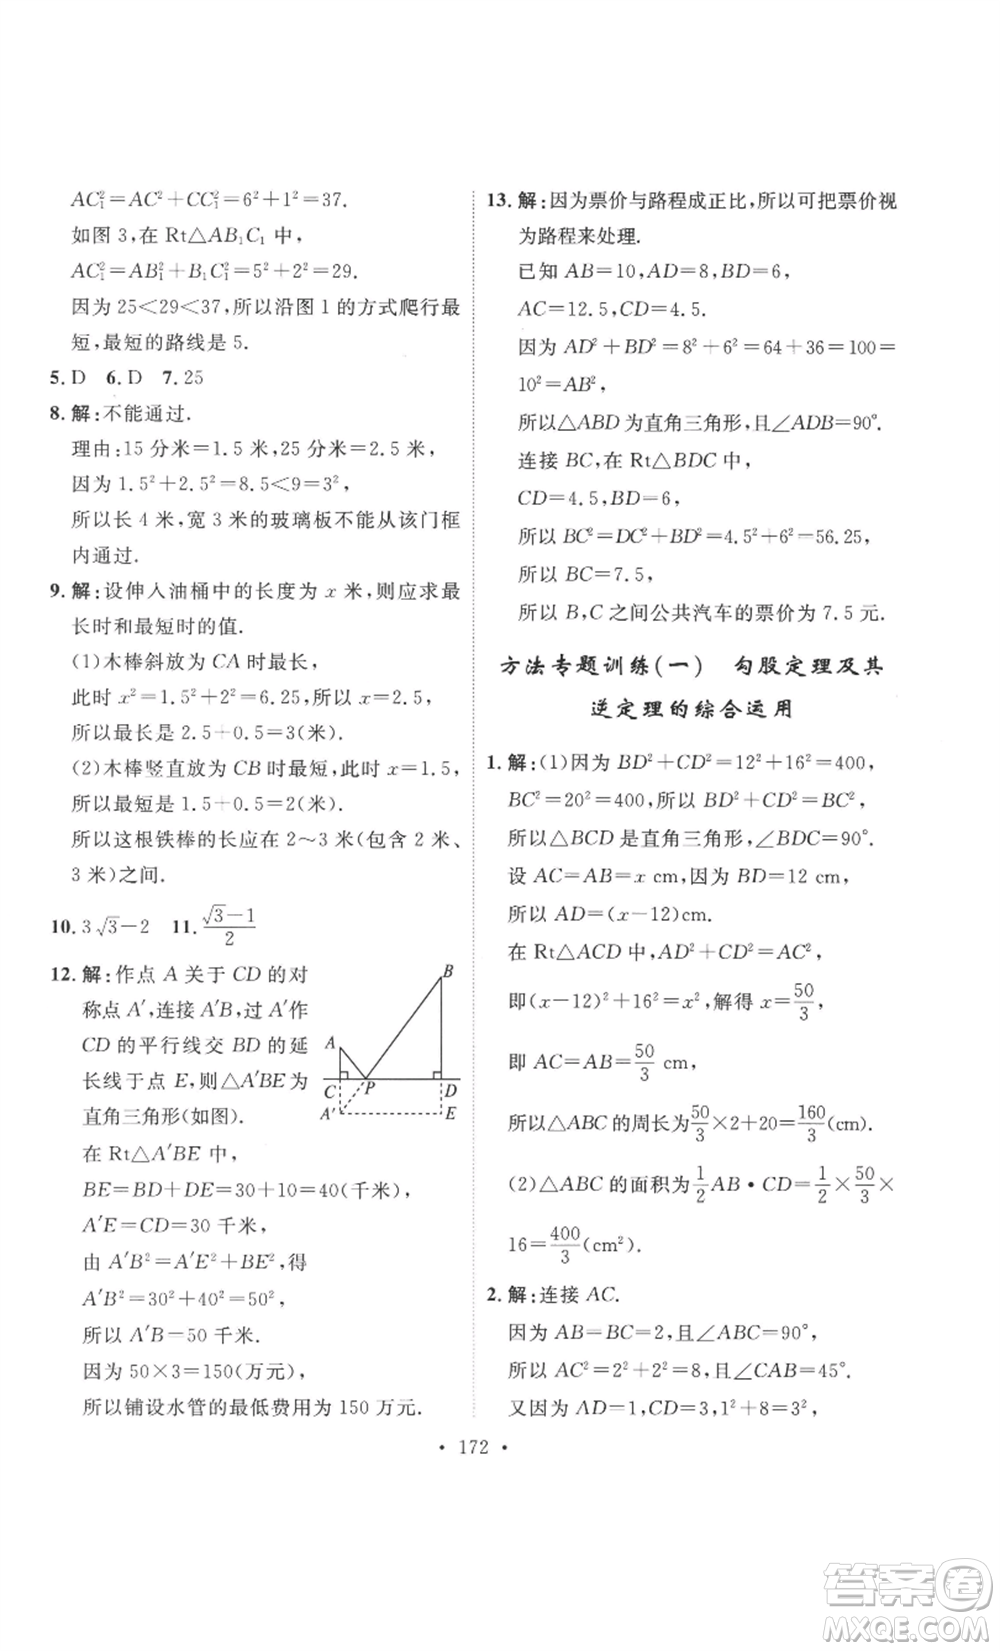 AC₁²=AC²+CC₁²=6²+1²=37.
如图 3,在 Rt△AB₁C₁ 中,
AC₁²=AB₁²+B₁C₁²=5²+2²=29.
因为 25<29<37,所以沿图 1 的方式爬行最
短,最短的路线是 5.
5. D 6. D 7. 25
8. 解:不能通过.
理由:15 分米=1.5 米,25 分米=2.5 米,
因为 1.5²+2.5²=8.5<9=3²,
所以长 4 米,宽 3 米的玻璃板不能从该门框
内通过.
9. 解:设伸入油桶中的长度为 x 米,则应求最
长时和最短时的值.
(1)木棒斜放为 CA 时最长,
此时 x²=1.5²+2²=6.25,所以 x=2.5,
所以最长是 2.5+0.5=3(米).
(2)木棒竖直放为 CB 时最短,此时 x=1.5,
所以最短是 1.5+0.5=2(米).
所以这根铁棒的长应在 2~3 米(包含 2 米、
3 米)之间.
10. 3√3-2 11. (√3-1)/2
12. 解:作点 A 关于 CD 的对
称点 A′,连接 A′B,过 A′作
CD 的平行线交 BD 的延
长线于点 E,则△A′BE 为
直角三角形(如图).
B
A
C P D
A′ E
在 Rt△A′BE 中,
BE=BD+DE=30+10=40(千米),
A′E=CD=30 千米,
由 A′B²=A′E²+BE²,得
A′B²=30²+40²=50²,
所以 A′B=50 千米.
因为 50×3=150(万元),
所以铺设水管的最低费用为 150 万元.
13. 解:因为票价与路程成正比,所以可把票价视
为路程来处理.
已知 AB=10,AD=8,BD=6,
AC=12.5,CD=4.5.
因为 AD²+BD²=8²+6²=64+36=100=
10²=AB²,
所以△ABD 为直角三角形,且∠ADB=90°.
连接 BC,在 Rt△BDC 中,
CD=4.5,BD=6,
所以 BC²=DC²+BD²=4.5²+6²=56.25,
所以 BC=7.5,
所以 B,C 之间公共汽车的票价为 7.5 元.
方法专题训练(一) 勾股定理及其
逆定理的综合运用
1. 解:(1)因为 BD²+CD²=12²+16²=400,
BC²=20²=400,所以 BD²+CD²=BC²,
所以△BCD 是直角三角形,∠BDC=90°.
设 AC=AB=x cm,因为 BD=12 cm,
所以 AD=(x-12)cm.
在 Rt△ACD 中,AD²+CD²=AC²,
即(x-12)²+16²=x²,解得 x=50/3,
即 AC=AB=50/3 cm,
所以△ABC 的周长为50/3×2+20=160/3(cm).
(2)△ABC 的面积为1/2AB·CD=1/2×50/3×
16=400/3(cm²).
2. 解:连接 AC.
因为 AB=BC=2,且∠ABC=90°,
所以 AC²=2²+2²=8,且∠CAB=45°.
又因为 AD=1,CD=3,1²+8=3²,
· 172 ·
答案圈
MXQE.COM